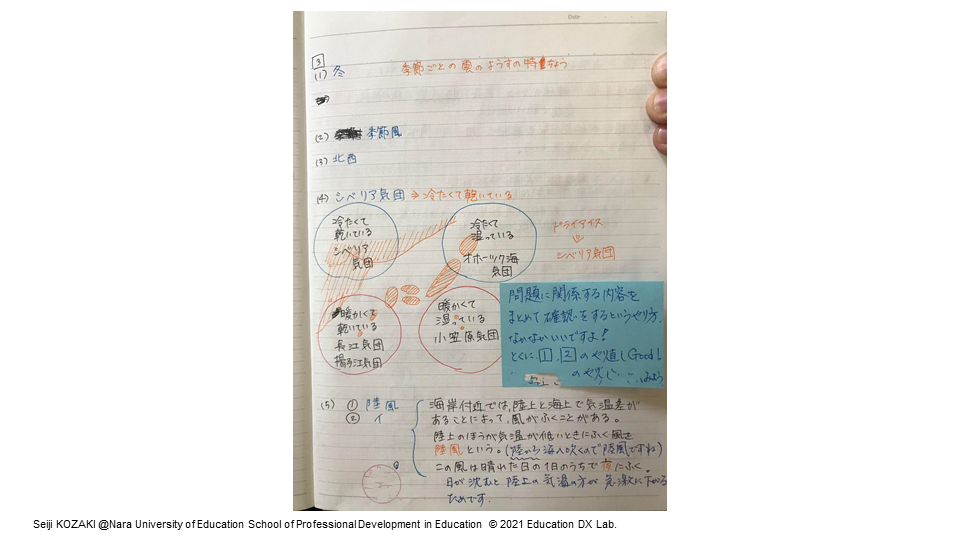 Date
3
(1) 冬
季節ごとの雲のようすの特ちょう
(2) 季節風
(3) 北西
(4) シベリア気団 ⇒ 冷たくて乾いている
冷たくて
乾いている
シベリア
気団
冷たくて
湿っている
オホーツク海
気団
ドライアイス
⇓
シベリア気団
暖かくて
乾いている
長江気団
揚子江気団
暖かくて
湿っている
小笠原気団
問題に関係する内容を
まとめて確認をするというやり方、
なかなかいいですよ!
とくに、1、2のやり直しGood!
のやり
(5) ① 陸風
② イ
海岸付近では、陸上と海上で気温差が
あることによって、風がふくことがある。
陸上のほうが気温が低いときにふく風を
陸風という。(陸から海へ吹くので陸風ですね)
この風は晴れた日の1日のうちで夜にふく。
日が沈むと陸上の気温の方が急激に下がる
ためです。
Seiji KOZAKI @Nara University of Education School of Professional Development in Education © 2021 Education DX Lab.